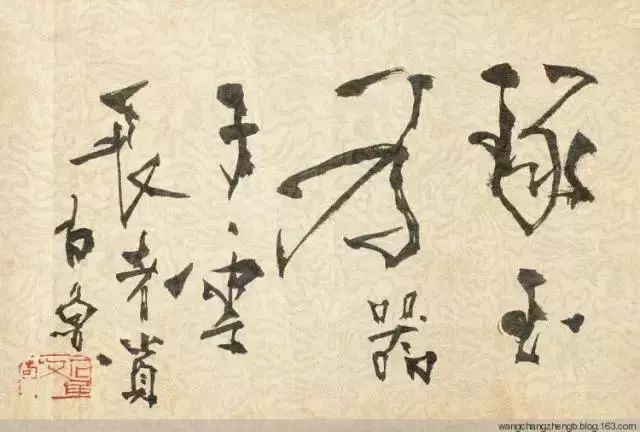 琢玉
为器
子雲
長者賞
石鲁
wangchangzhengb.blog.163.com